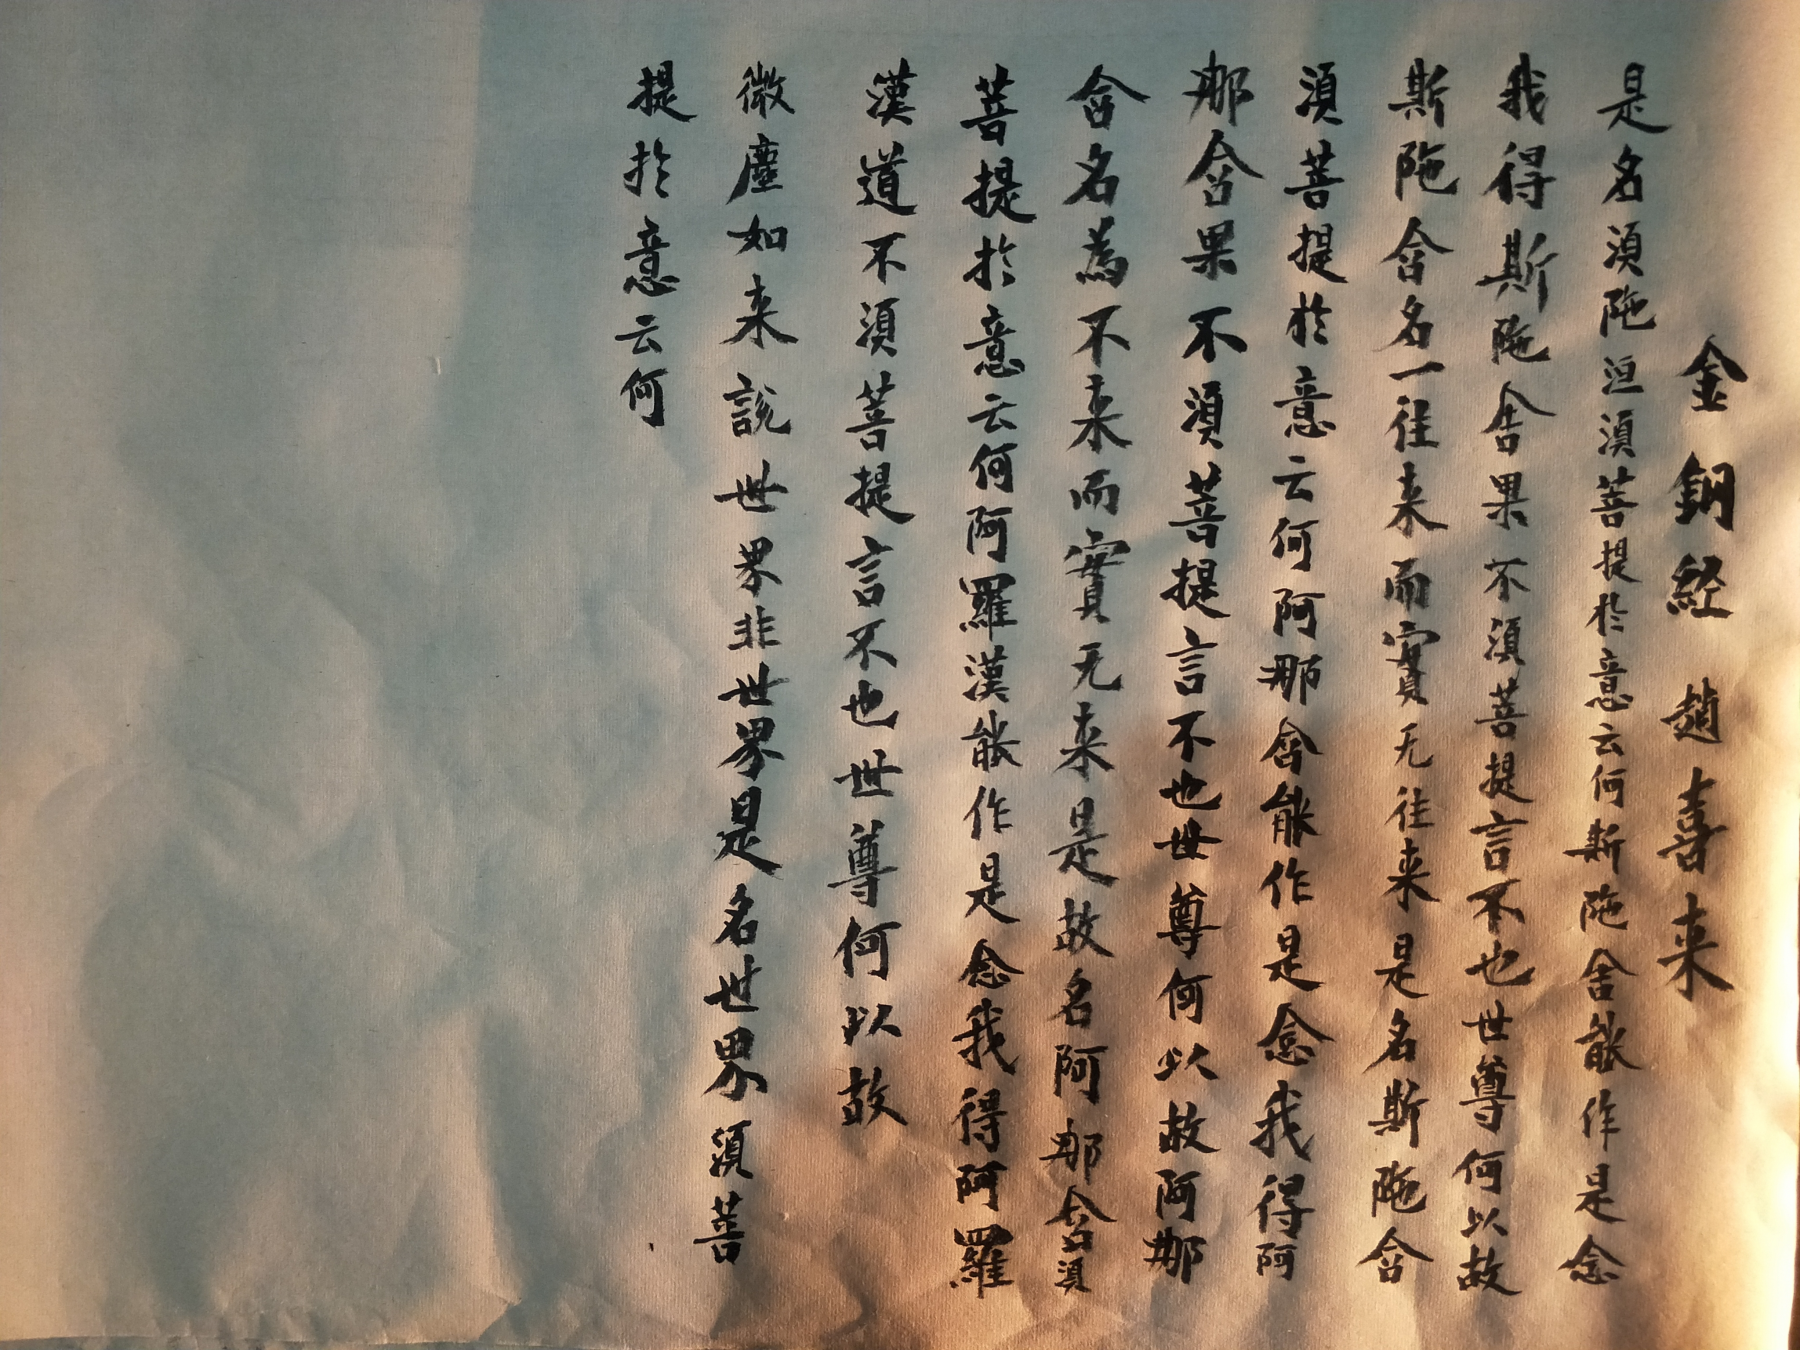 金鋼経 趙喜来
是名湏陁洹湏菩提於意云何斯陁舍能作是念
我得斯陁舍果不湏菩提言不也世尊何以故
斯陁含名一往来而實无往来是名斯陁含
湏菩提於意云何阿那含能作是念我得阿
那含果不湏菩提言不也世尊何以故阿那
含名為不来而實无来是故名阿那含湏
菩提於意云何阿羅漢能作是念我得阿羅
漢道不湏菩提言不也世尊何以故
微塵如来説世界非世界是名世界湏菩
提於意云何